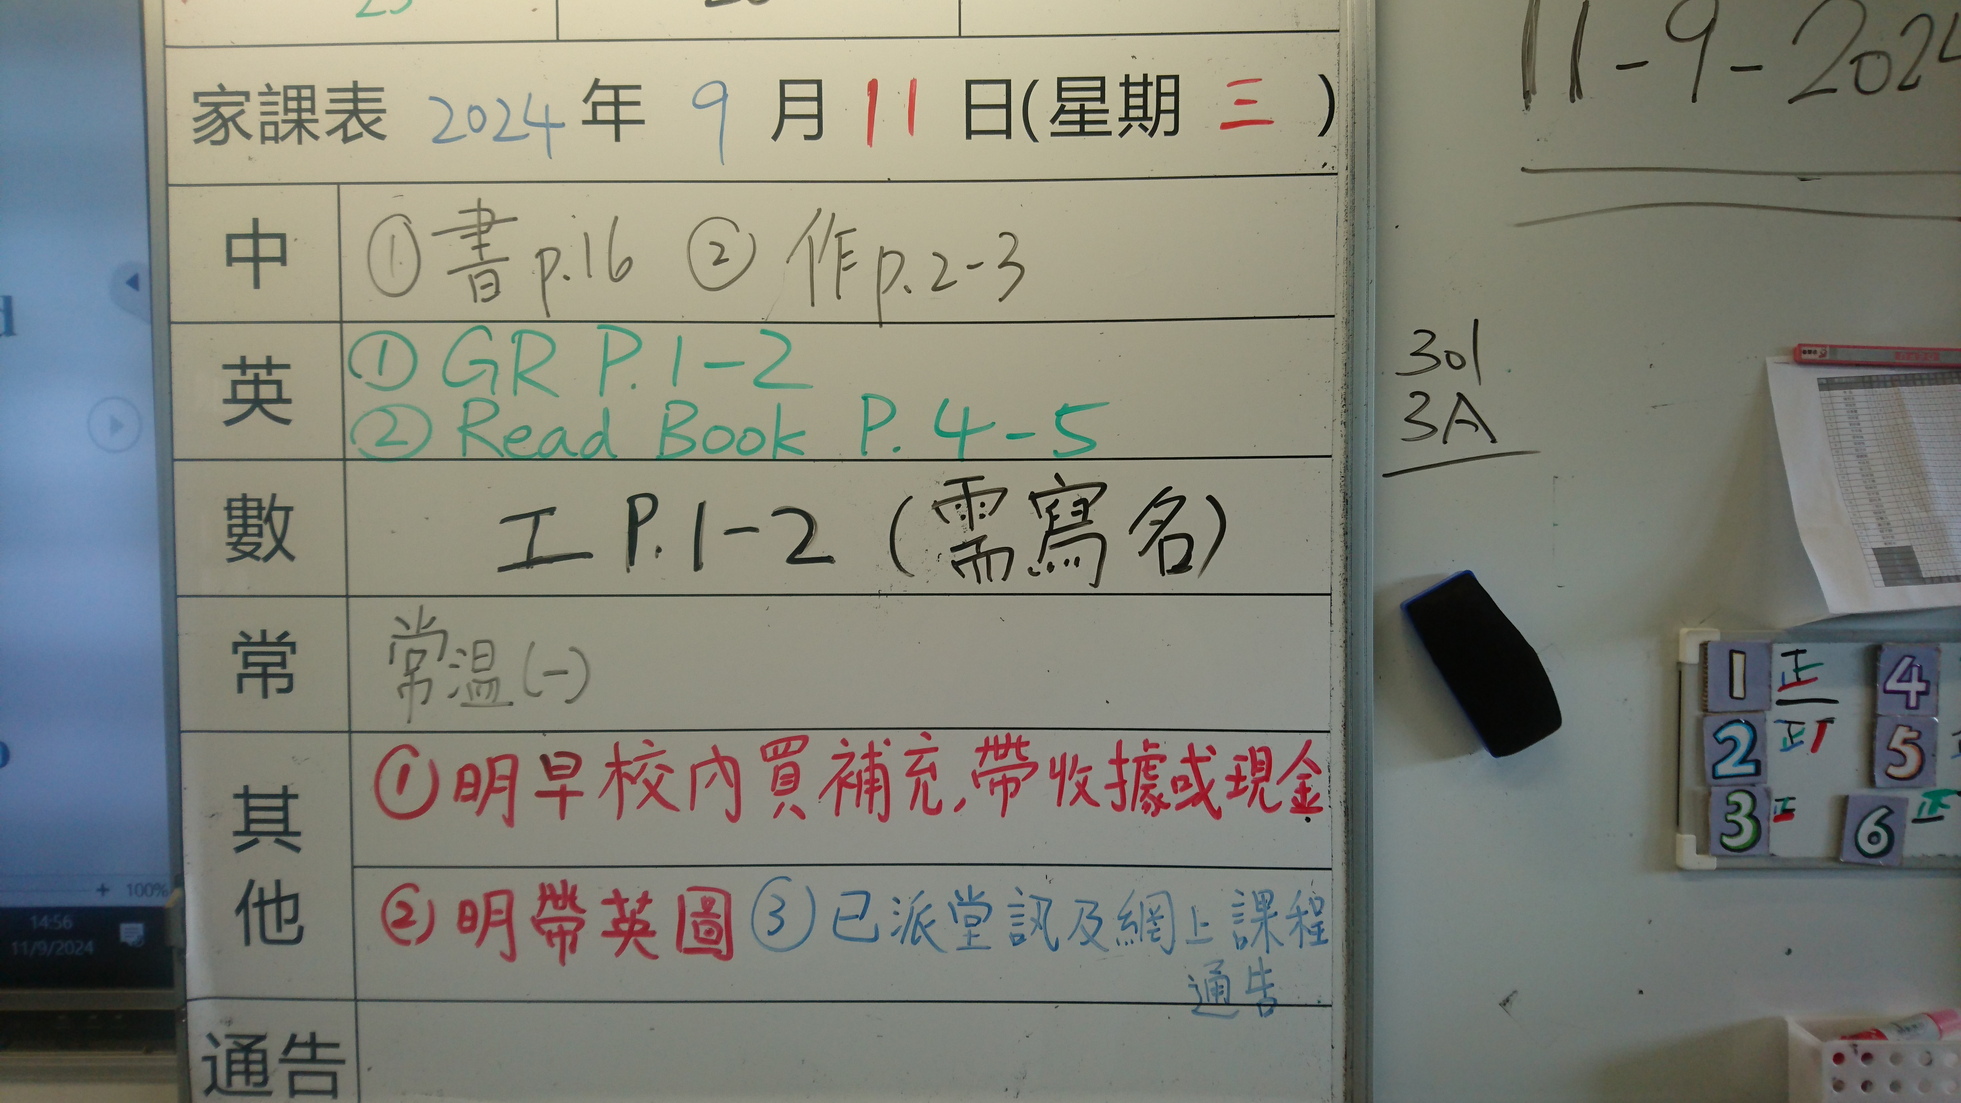 家課表 2024 年 9 月 11 日(星期 三 )
中 ①書p.16 ②作p.2-3
英 ① GR P.1-2
② Read Book P.4-5
數 工 P.1-2 (需寫名)
常 常溫(一)
其他 ①明早校內買補充,帶收據或現金
②明帶英圖 ③已派堂訊及網上課程
通告
通告
11-9-2024
301
3A
1 正 4
2 正 5
3 正 6 正
100%
14:56
11/9/2024